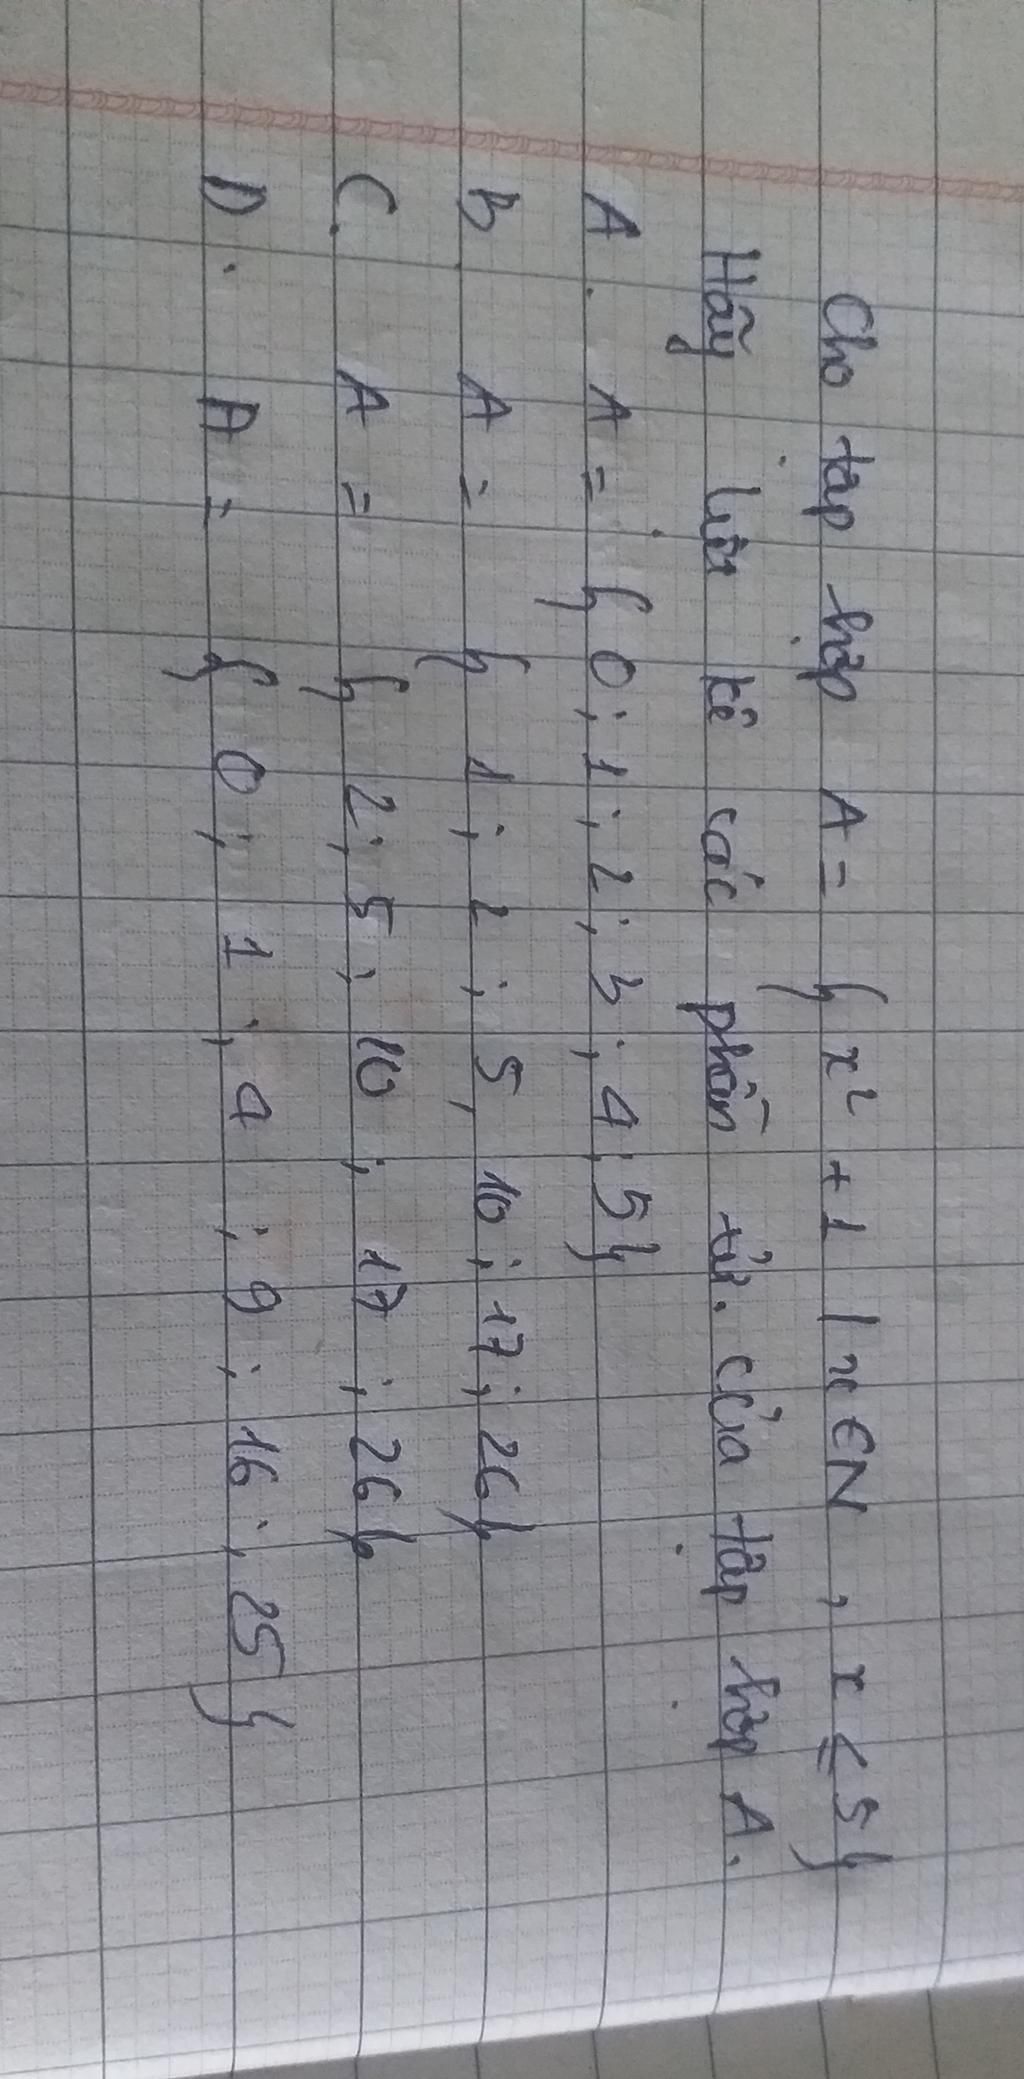 Cho tập hợp A = { x² + 1 | x ∈ N , x ≤ 5 }
Hãy liệt kê các phần tử của tập hợp A.
A. A = { 0 ; 1 ; 2 ; 3 ; 4 ; 5 }
B A = { 1 ; 2 ; 5 , 10 ; 17 ; 26 }
C. A = { 2 ; 5 ; 10 ; 17 ; 26 }
D. A = { 0 ; 1 ; 4 ; 9 ; 16 ; 25 }